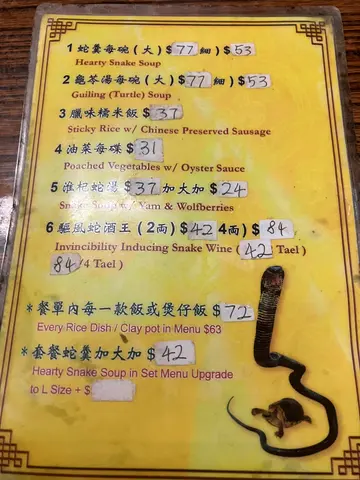 1 蛇羹每碗 (大) $77 細) $53
Hearty Snake Soup
2 龜苓湯每碗 (大) $77 細) $53
Guiling (Turtle) Soup
3 臘味糯米飯 $37
Sticky Rice w/ Chinese Preserved Sausage
4 油菜每碟 $31
Poached Vegetables w/ Oyster Sauce
5 淮杞蛇湯 $37 加大加 $24
Snake Soup w/ Yam & Wolfberries
6 驅風蛇酒王 (2両) $42 4両) $84
Invincibility Inducing Snake Wine (42 Tael)
84/4 Tael)
*餐單內每一款飯或煲仔飯 $72
Every Rice Dish / Clay pot in Menu $63
*套餐蛇羹加大加 $42
Hearty Snake Soup in Set Menu Upgrade
to L Size + $